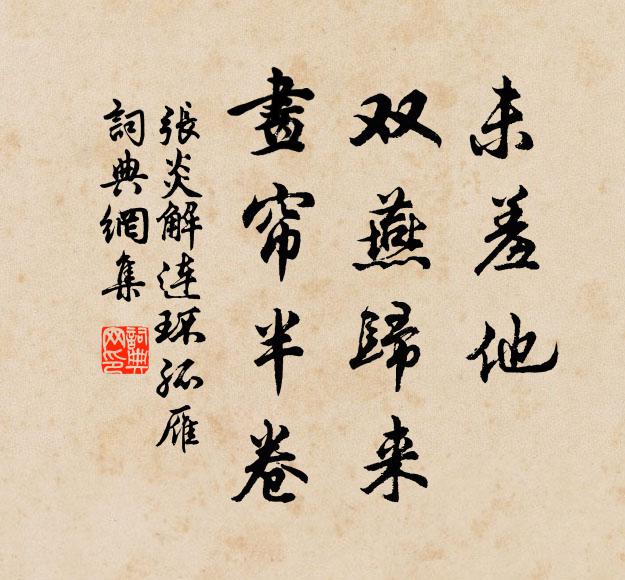 未羞他
双燕歸来
畫帘半卷
張炎解连环孤雁
詞典網集
詞典
网印